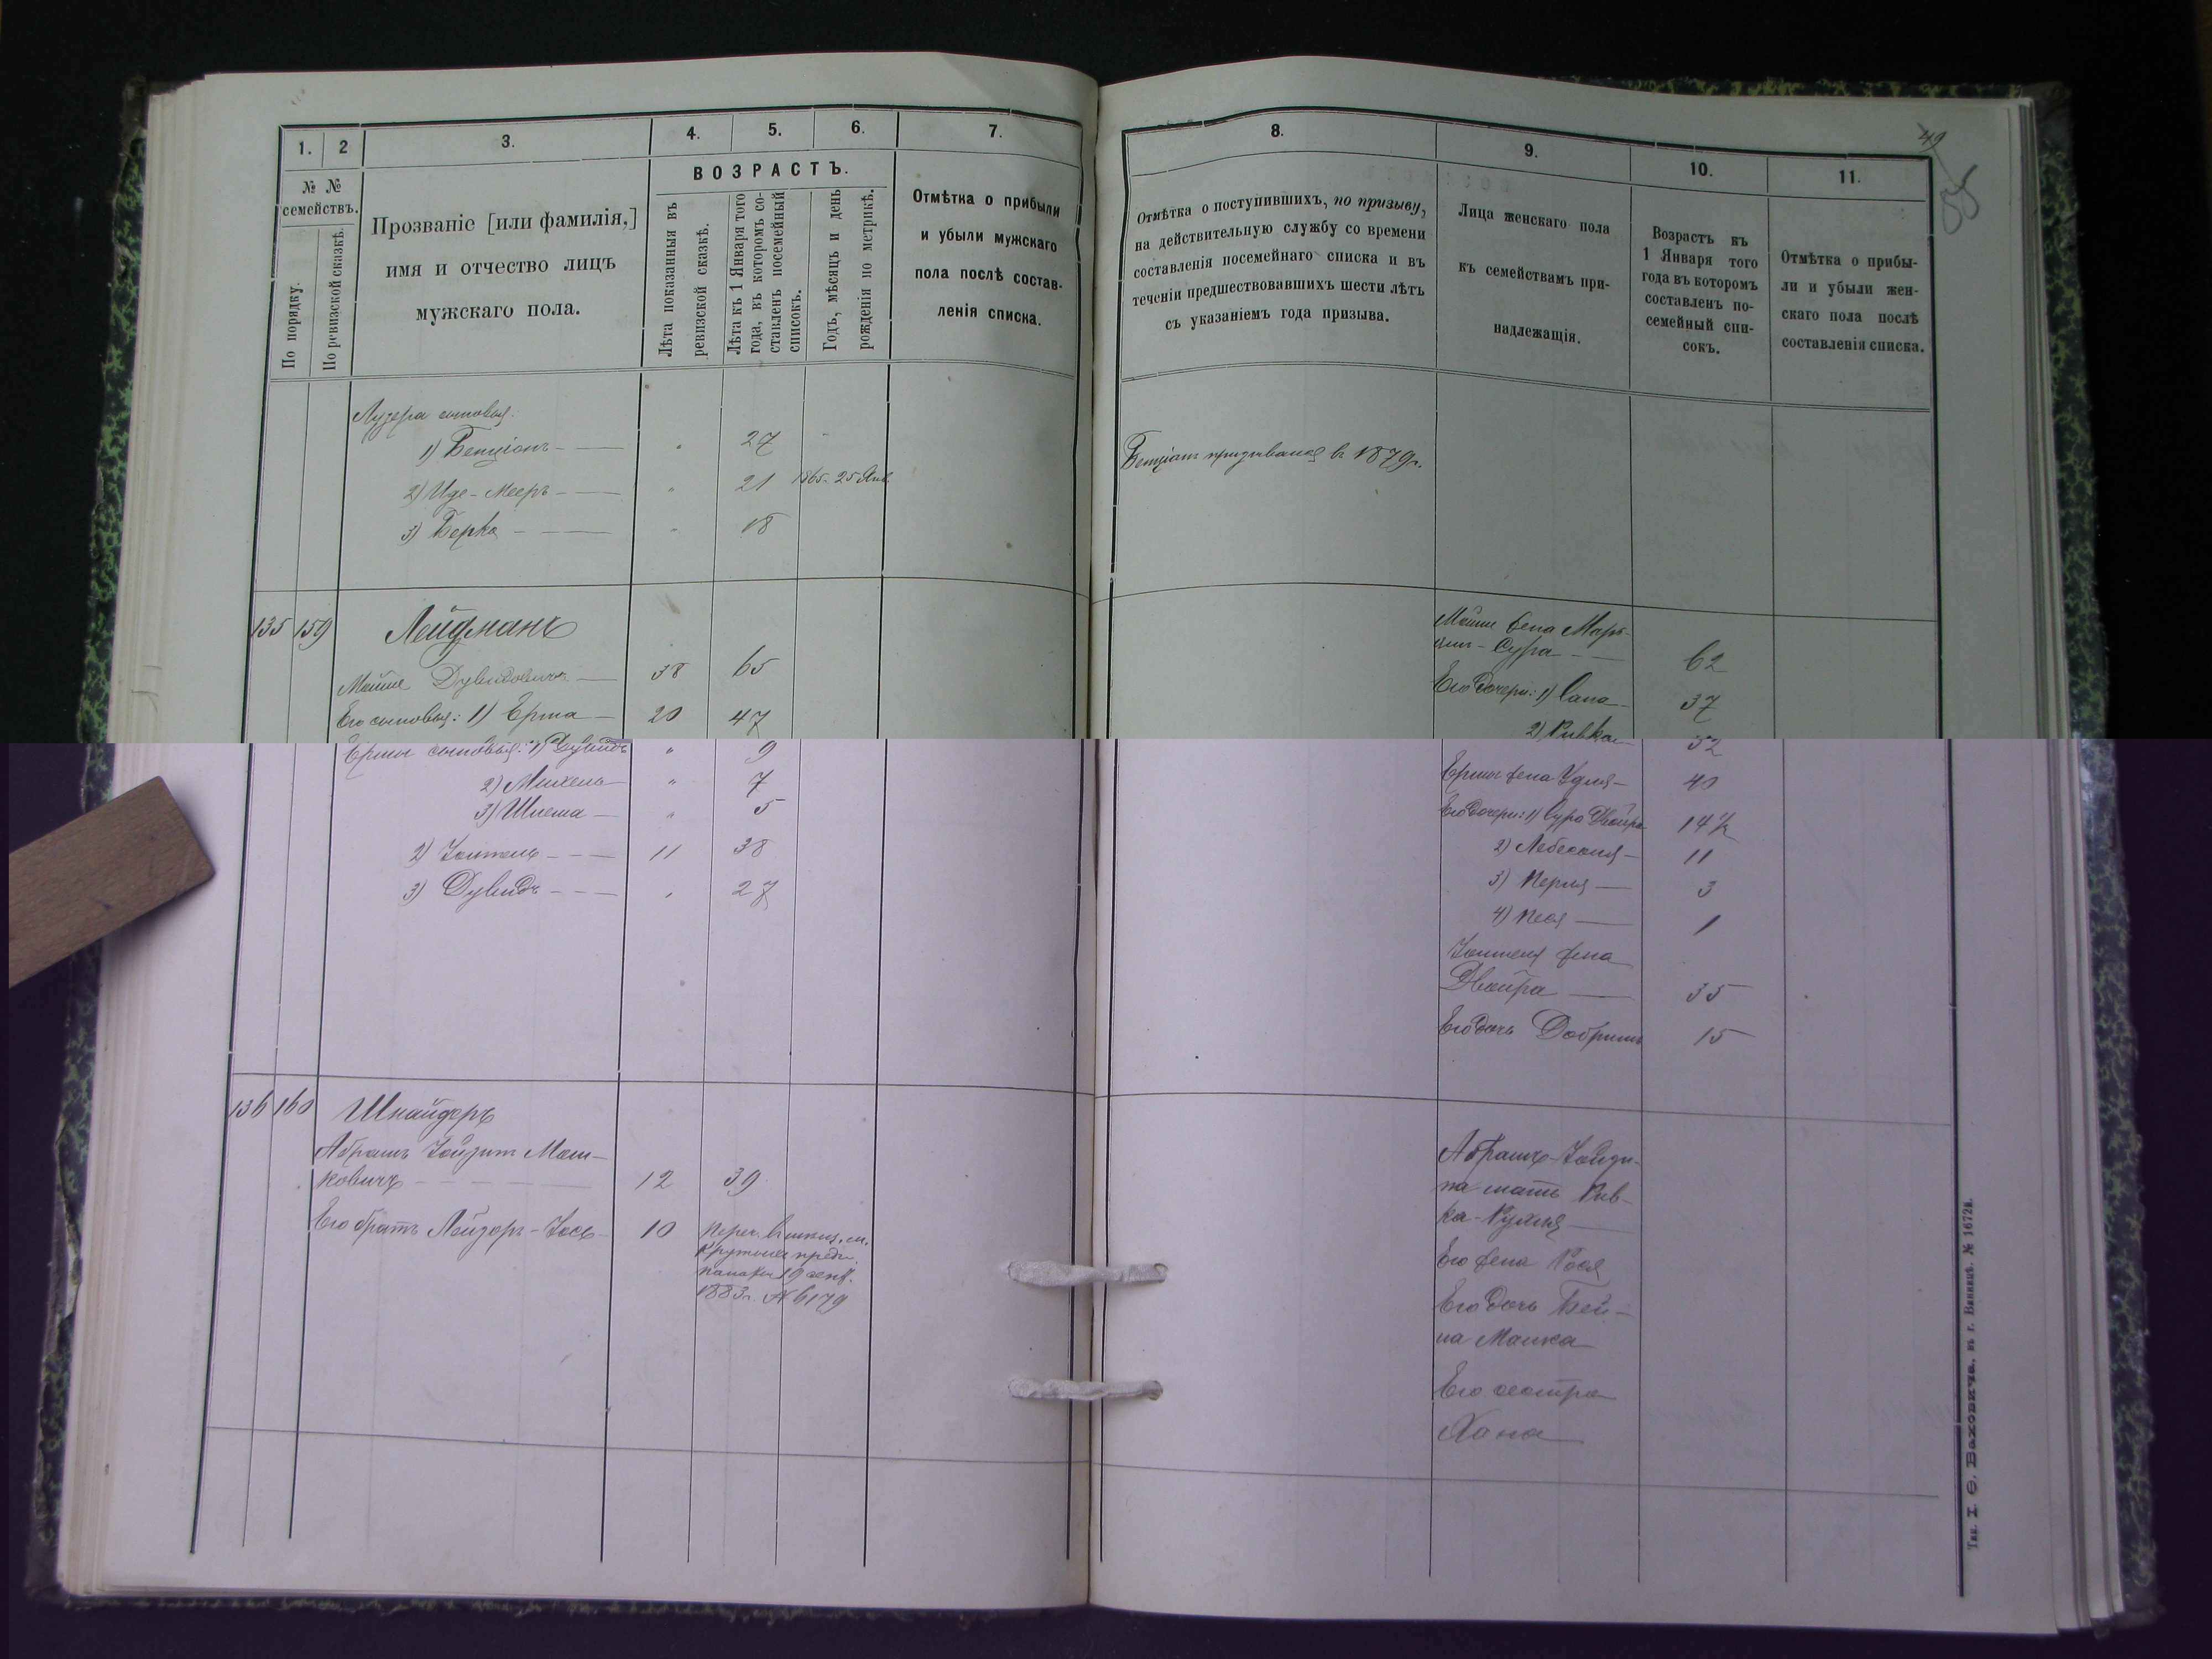 1.
2
3.
4.
5.
6.
7.
№ №
семействъ.
По порядку.
По ревизской сказкѣ.
Прозваніе [или фамилія,]
имя и отчество лицъ
мужскаго пола.
ВОЗРАСТЪ.
Лѣта показанныя въ
ревизской сказкѣ.
Лѣта къ 1 Января того
года, въ которомъ со-
ставленъ посемейный
списокъ.
Годъ, мѣсяцъ и день
рожденія по метрикѣ.
Отмѣтка о прибыли
и убыли мужскаго
пола послѣ состав-
ленія списка.
Лузера сыновья:
1) Бенціонъ 27
2) Иде-Мееръ 21 1865. 25 Янв.
3) Берко 18
135 159 Лейдманъ
Мойше Дувидовичъ 38 65
Его сыновья: 1) Ерма 20 47
Ермы сыновья: 1) Дувидъ " 9
2) Михель " 7
3) Шлема " 5
2) 11 38
3) Дувидъ 27
136 160 Шнайдеръ
Абрамъ Мош-
ковичъ 12 39
Его братъ Лейзоръ-Йось 10
19 сент.
1883 г. № 6179
8.
9.
10.
11.
49
Отмѣтка о поступившихъ, по призыву,
на дѣйствительную службу со времени
составленія посемейнаго списка и въ
теченіи предшествовавшихъ шести лѣтъ
съ указаніемъ года призыва.
Лица женскаго пола
къ семействамъ при-
надлежащія.
Возрастъ къ
1 Января того
года въ которомъ
составленъ по-
семейный спи-
сокъ.
Отмѣтка о прибы-
ли и убыли жен-
скаго пола послѣ
составленія списка.
Бенціонъ призывался въ 1879 г.
Мойше жена Марь-
Сура 62
Его дочери: 1) 37
2) Ривка 32
Ермы жена Удля 40
Его дочери: 1) Сура Двойра 14½
2) 11
3) Перля 3
4) 1
жена
Двойра 35
Его дочь Добрышъ 15
Абрамъ-Зойзи-
ла мать Рив-
ка-Рухля
Его жена
Его дочь Бей-
ла Малка
Его сестра
Хана
Тип. І. Ѳ. Ваховича, въ г. Винницѣ. № 1672в.